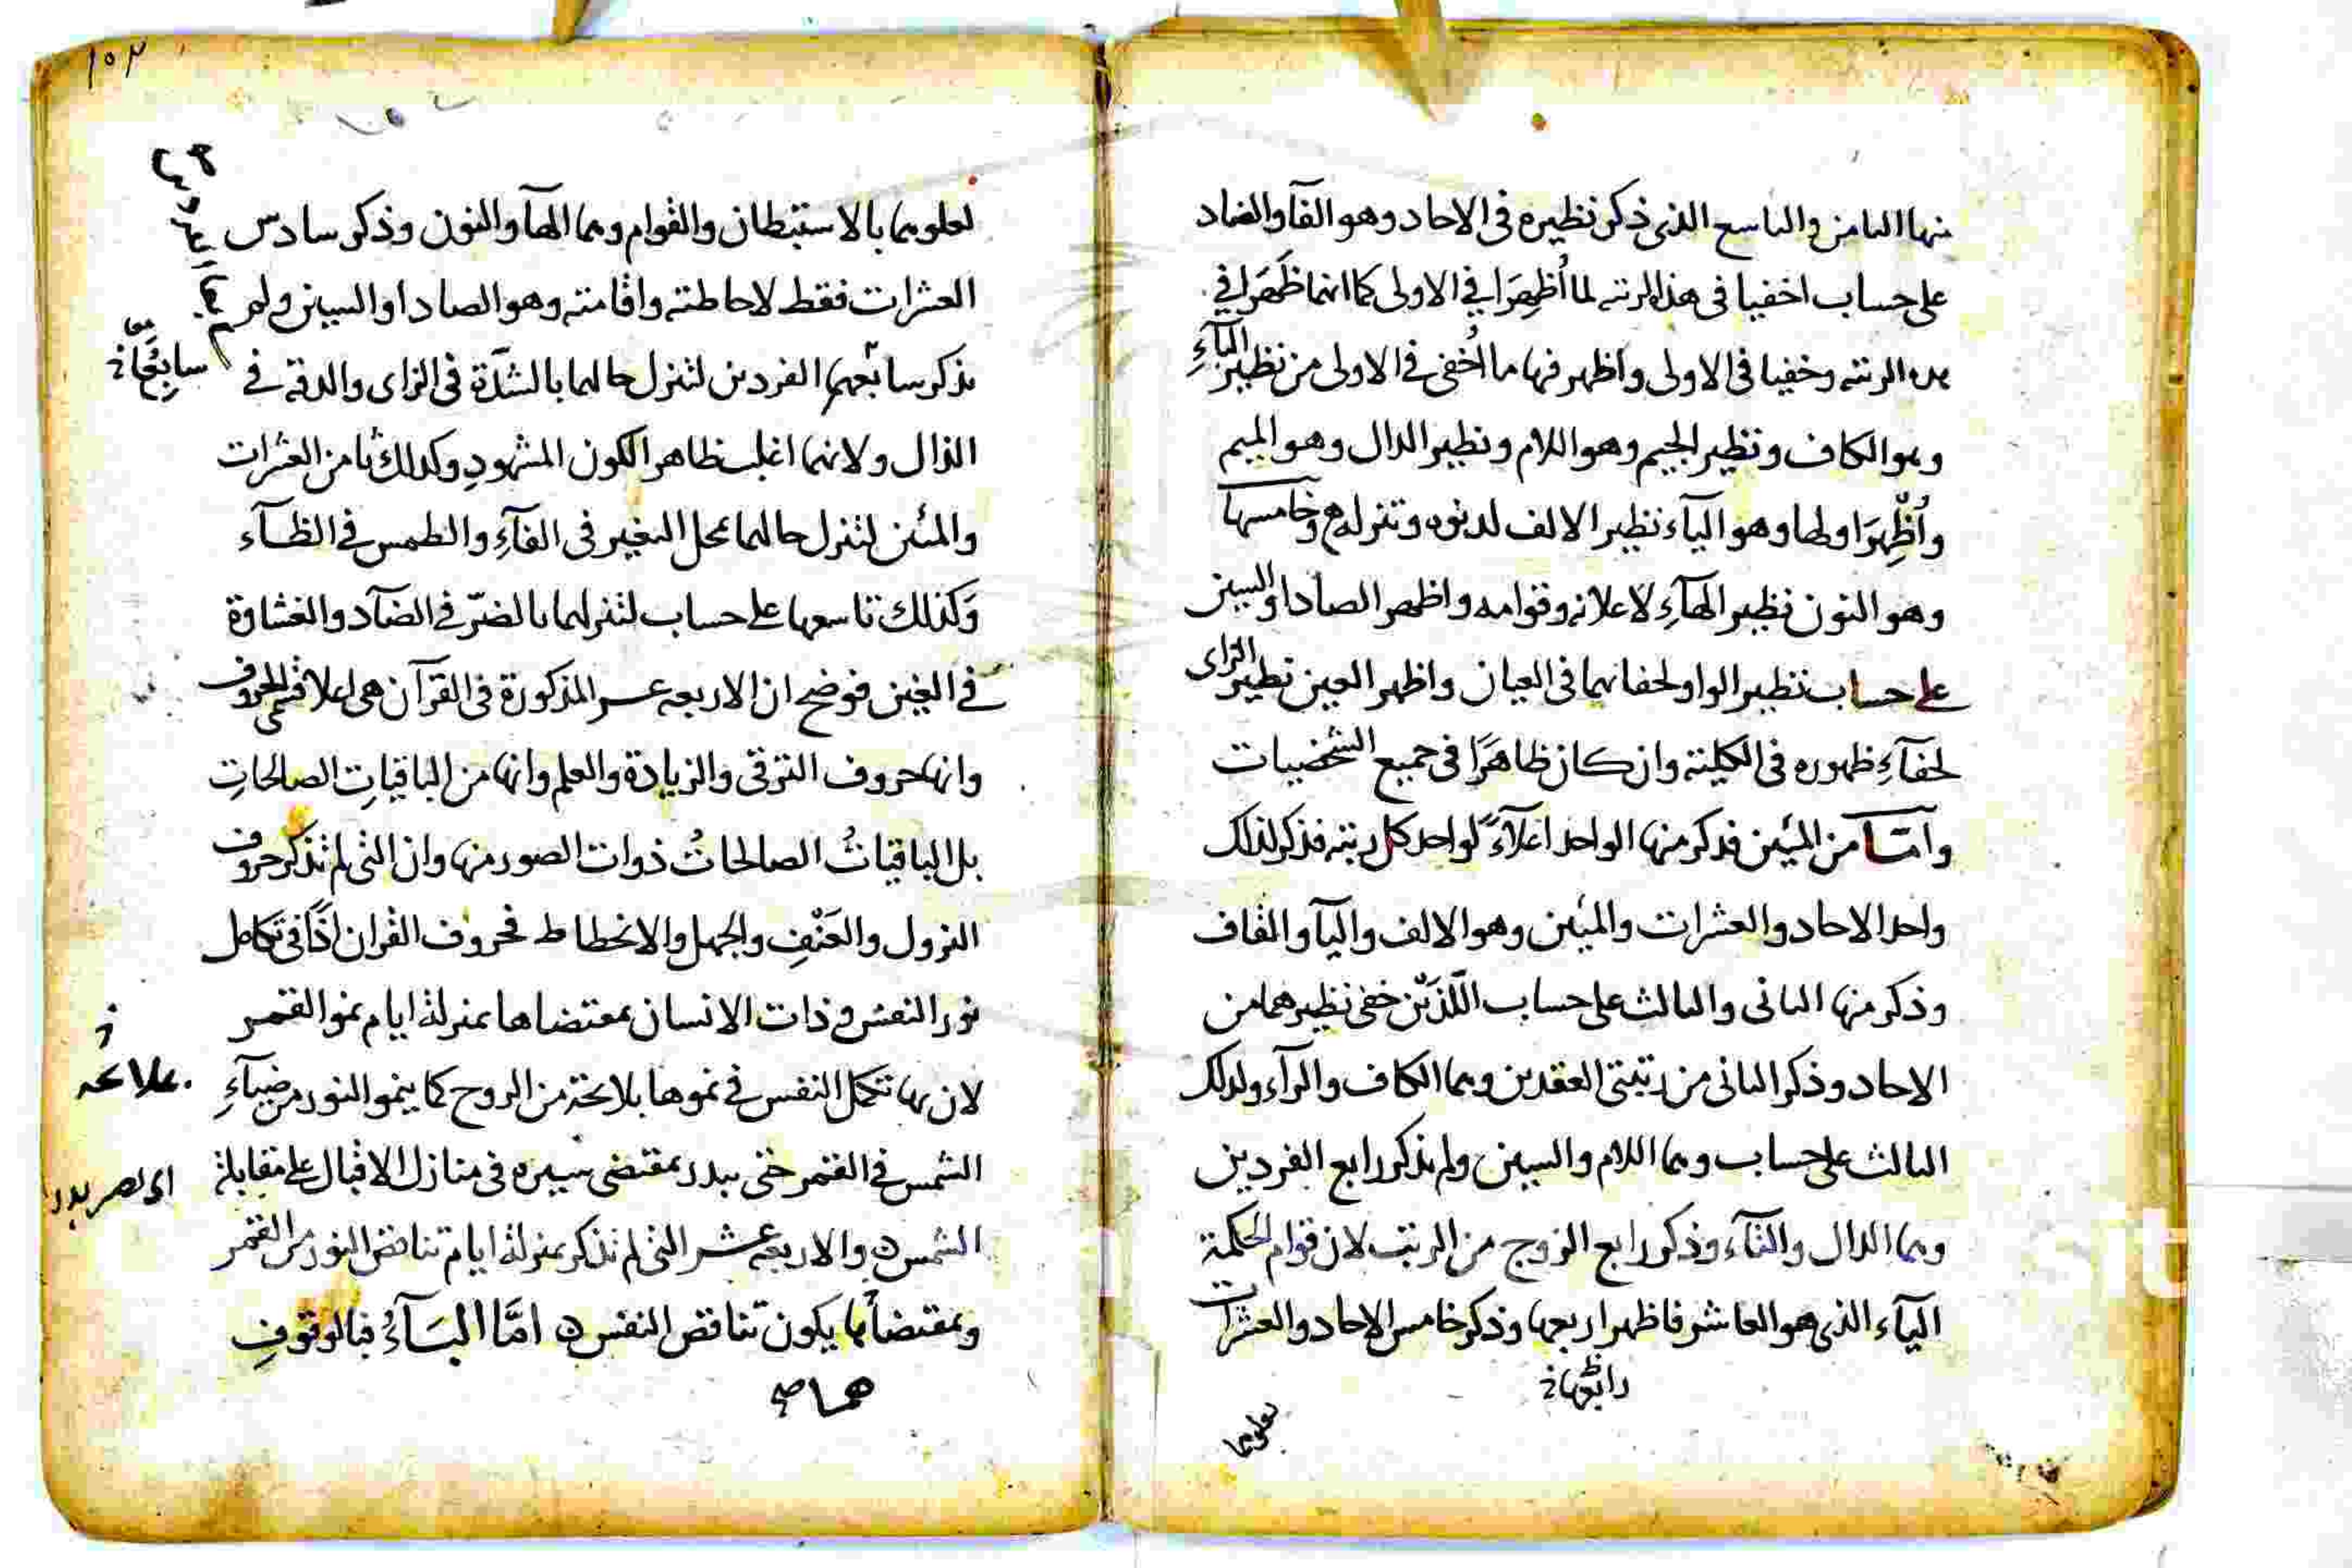 منها الثامن والتاسع الذى ذكر نظيره فى الاحاد وهو الفآ والضاد
على حساب اخفيا فى هذه الرتبه لما اُظهِرَا فى الاولى كما انهما ظَهَرا فى
هذه الرتبه وخفيا فى الاولى واظهر فيها ما اُخفى فى الاولى من نظير البآءِ
وهو الكاف ونظير الجيم وهو اللام ونظير الدال وهو الميم
وأُظْهِرَ اولها وهو اليآء نظير الالف لدنوه وتنزله وخامسها
وهو النون نظير الهآءِ لاعلانه وقوامه واظهر الصاد او السين
على حساب نظير الواو لخفائهما فى العيان واظهر العين نظير الزاى
لخفآءِ ظهوره فى الكلية وان كان ظاهرًا فى جميع الشخصيات
وامّا من المئين فذكر منها الواحد اعلآءً لواحد كل رتبه فذكر لذلك
واحد الاحاد والعشرات والمئين وهو الالف واليآ والقاف
وذكر منها الثانى والثالث على حساب اللّذَيْن خفى نظيرهما من
الاحاد وذكر الثانى من رتبتى العقدين وهما الكاف والرآء ولذلك
الثالث على حساب وهما اللام والسين ولم يذكر رابع الفردين
وهما الدال والتآء وذكر رابع الزوج من الرتب لان قوام الحكمة
اليآء الذى هو العاشر فاظهر اربعها وذكر خامس الاحاد والعشرات
رابعها
لعلوهما
١٠٣
لعلوهما بالاستبطان والقوام وهما الهآ والنون وذكر سادس
العشرات فقط لاحاطته واقامته وهو الصاد او السين ولم
يذكر سابعهم الفردين لتنزل حالهما بالشدّة فى الزاى والدقة فى
سابعهما
الذال ولانهما اغلب ظاهر الكون المشهودِ وكذلك ثامن العشرات
والمئين لتنزل حالهما بمحل التغير فى الفآءِ والطمس فى الظآء
وَكذلك تاسعها على حساب لتنزلهما بالضرّ فى الضآد والغشاوة
فى الغين فوضح ان الاربعه عشر المذكورة فى القرآن هى اعلا الحروف
وانها حروف الترقى والزيادة والعلم وانها من الباقياتِ الصالحاتِ
بل الباقياتُ الصالحاتُ ذوات الصور منها وان التى لم تذكر حروف
النزول والعَنْفِ والجهل والانحطاط فحروف القران اذًا فى تكامل
نور النفس فى ذات الانسان بمقتضاها بمنزلة ايام نمو القمر
لان بها تتكمل النفس فى نموها بلائحة من الروح كما ينمو النور من ضيآءِ
الشمس فى القمر حتى يبدر بمقتضى سيره فى منازل الاقبال على مقابلة
اى يصير بدرا
الشمس ۵ والاربعه عشر التى لم تذكر بمنزلة ايام تناقص النور من القمر
وبمقتضاها يكون تناقص النفس ۵ امَّا البآءُ فبالوقوفِ
هما صح